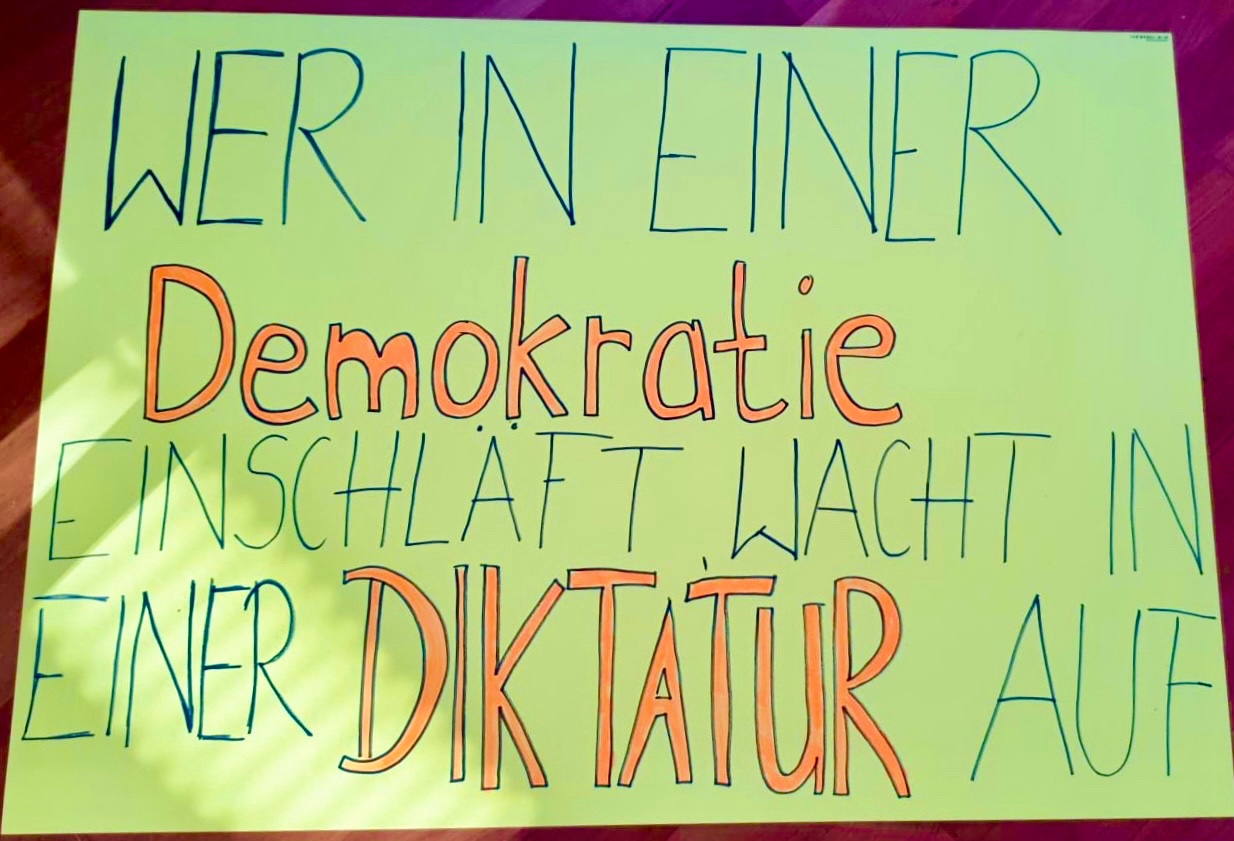 WER IN EINER
Demokratie
EINSCHLÄFT WACHT IN
EINER DIKTATUR AUF